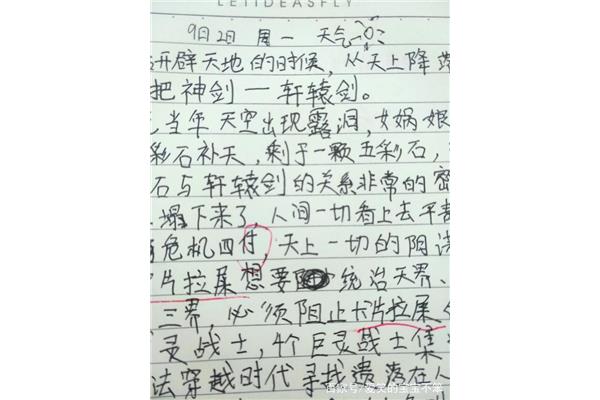 LETIDEASFLY
9日2日 周一 天气
开辟天地的时候,从天上降落
把神剑一轩辕剑。
当年天空出现露洞,女娲娘
彩石补天,剩于一颗五彩石,
石与轩辕剑的关系非常的密
塌下来了,人间一切看上去平静
危机四付,天上一切的阴谋
片拉屎想要统治天界、
三界,必须阻止卡片拉屎
灵战士,4个巨灵战士集
法穿越时代寻找遗落在人